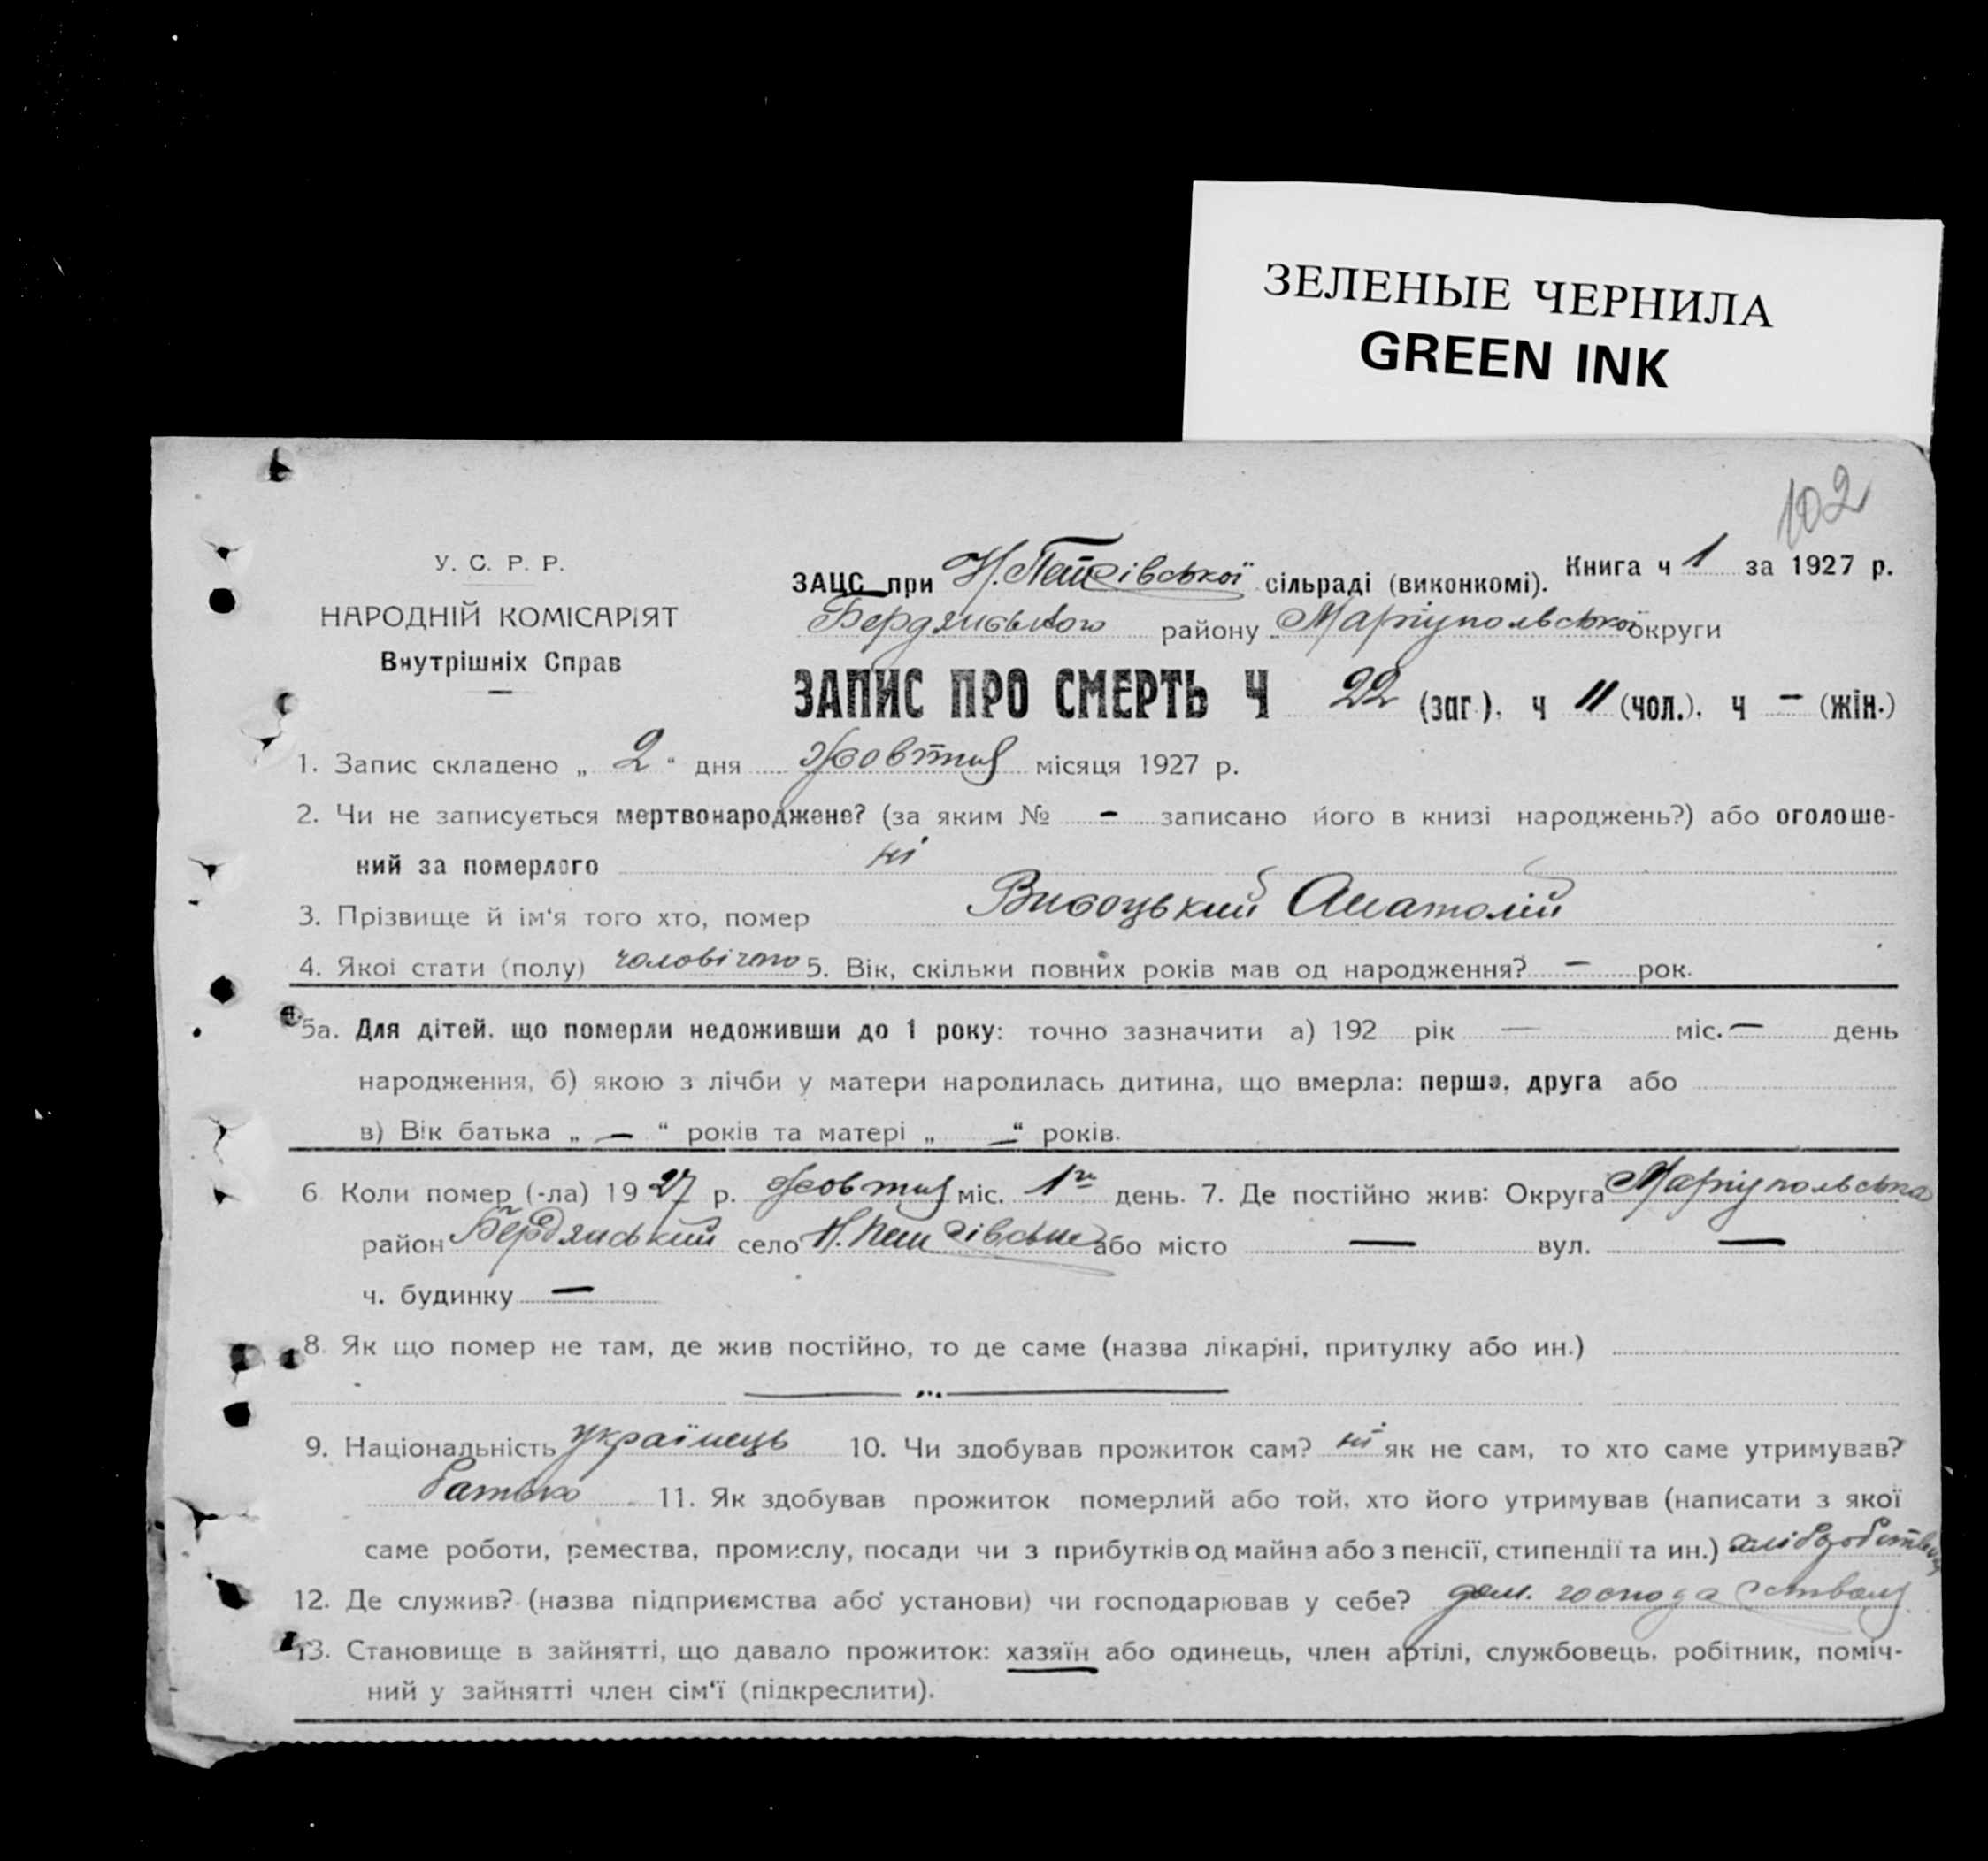 ЗЕЛЕНЫЕ ЧЕРНИЛА
GREEN INK
102
У. С. Р. Р.
НАРОДНІЙ КОМІСАРІЯТ
Внутрішніх Справ
ЗАЦС при Н. сільраді (виконкомі). Книга ч 1 за 1927 р.
Бердянського району Маріупольської округи
ЗАПИС ПРО СМЕРТЬ Ч 22 (заг.), ч 11 (чол.), ч – (жін.)
1. Запис складено „ 2 “ дня Жовтня місяця 1927 р.
2. Чи не записується мертвонароджене? (за яким № – записано його в книзі народжень?) або оголоше-
ний за померлого ні
3. Прізвище й ім‘я того хто, помер Висоцький Анатолій
4. Якоі стати (полу) чоловічого 5. Вік, скільки повних років мав од народження? – рок.
5а. Для дітей, що померли недоживши до 1 року: точно зазначити а) 192 рік — міс. — день
народження, б) якою з лічби у матери народилась дитина, що вмерла: перша, друга або
в) Вік батька „ — “ років та матері „ — “ років.
6. Коли помер (-ла) 1927 р. Жовтня міс. 1го день. 7. Де постійно жив: Округа Маріупольська
район Бердянський село Н. або місто — вул. —
ч. будинку —
8. Як що помер не там, де жив постійно, то де саме (назва лікарні, притулку або ин.)
9. Національність українець 10. Чи здобував прожиток сам? ні як не сам, то хто саме утримував?
батько 11. Як здобував прожиток померлий або той, хто його утримував (написати з якої
саме роботи, ремества, промислу, посади чи з прибутків од майна або з пенсії, стипендії та ин.)
12. Де служив? (назва підприємства або установи) чи господарював у себе? дом. господарством
13. Становище в зайнятті, що давало прожиток: хазяїн або одинець, член артілі, службовець, робітник, поміч-
ний у зайнятті член сім‘ї (підкреслити).